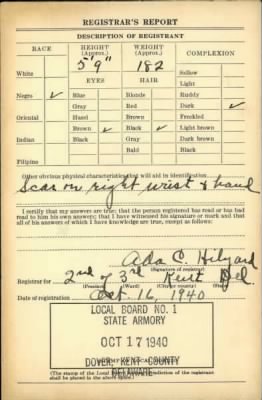 REGISTRAR'S REPORT
DESCRIPTION OF REGISTRANT
RACE HEIGHT (Approx.) WEIGHT (Approx.) COMPLEXION
5' 9" 182
White EYES HAIR Sallow
Light
Negro ✓ Blue Blonde Ruddy
Gray Red Dark ✓
Oriental Hazel Brown Freckled
Brown ✓ Black ✓ Light brown
Indian Black Gray Dark brown
Bald Black
Filipino
Other obvious physical characteristics that will aid in identification
Scar on right wrist & hand
I certify that my answers are true; that the person registered has read or has had
read to him his own answers; that I have witnessed his signature or mark and that
all of his answers of which I have knowledge are true, except as follows:
Ada C.
(Signature of registrar)
Registrar for 2nd of 3rd Kent Del
(Precinct) (Ward) (City or county) (State)
Date of registration Oct. 16, 1940
LOCAL BOARD NO. 1
STATE ARMORY
OCT 17 1940
DOVER, KENT COUNTY
DELAWARE
(The stamp of the Local Board having jurisdiction of the registrant
shall be placed in the above space.)